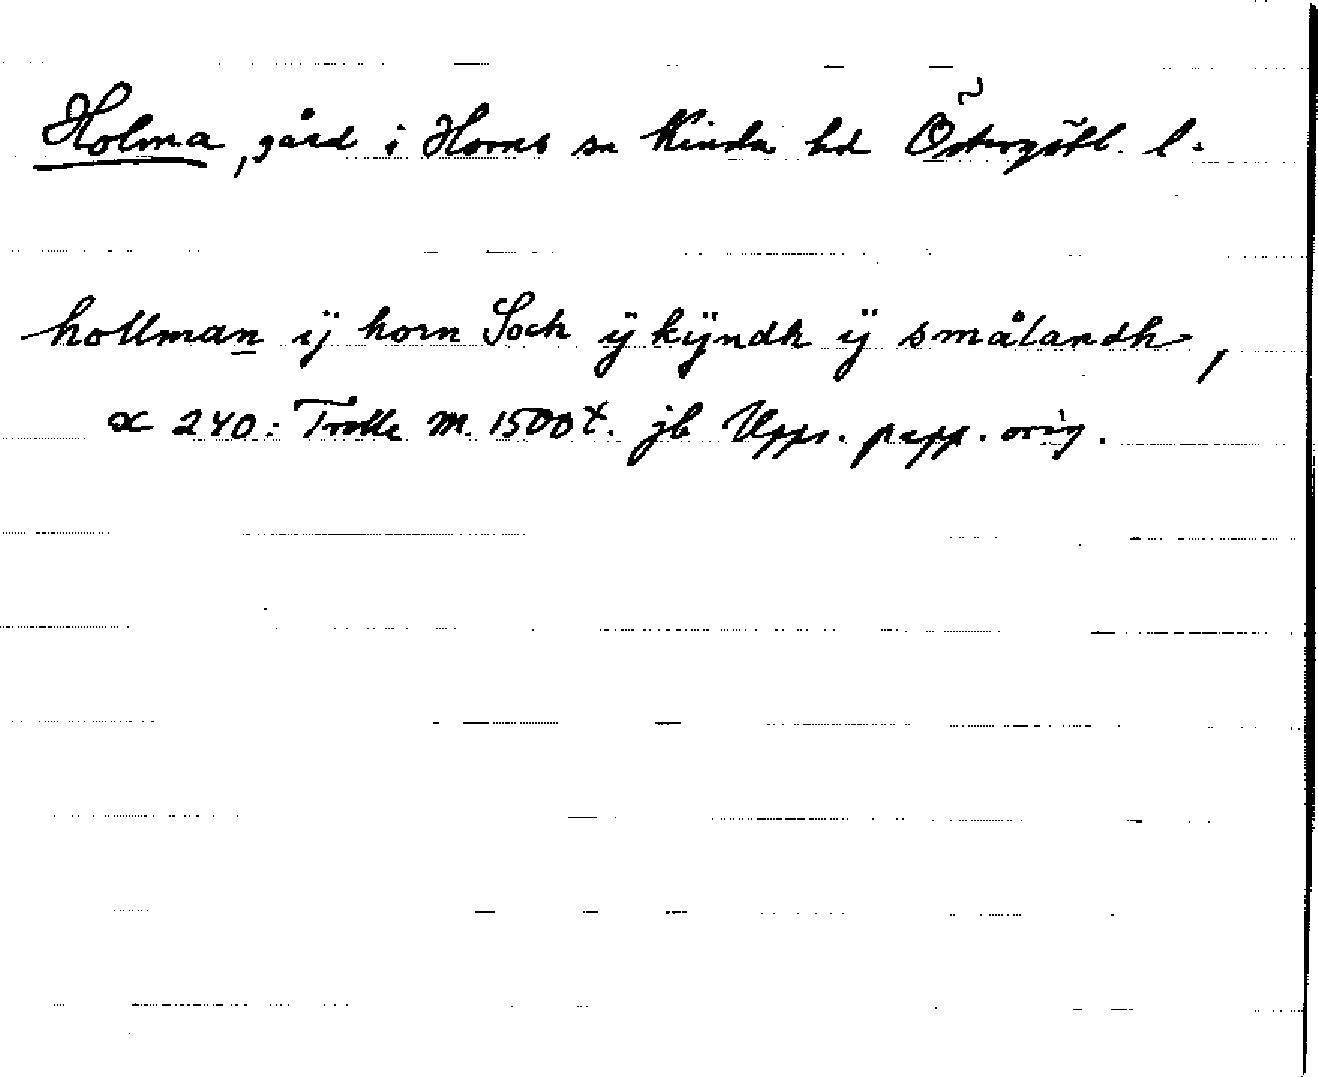 Holma, gård i Horns sn Kinda hd Östergötl. l.
hollman ij horn Soch ÿ kÿndh ÿ smålandh,
α 240: Trolle m. 1500 t. jb Upps. papp. orig.